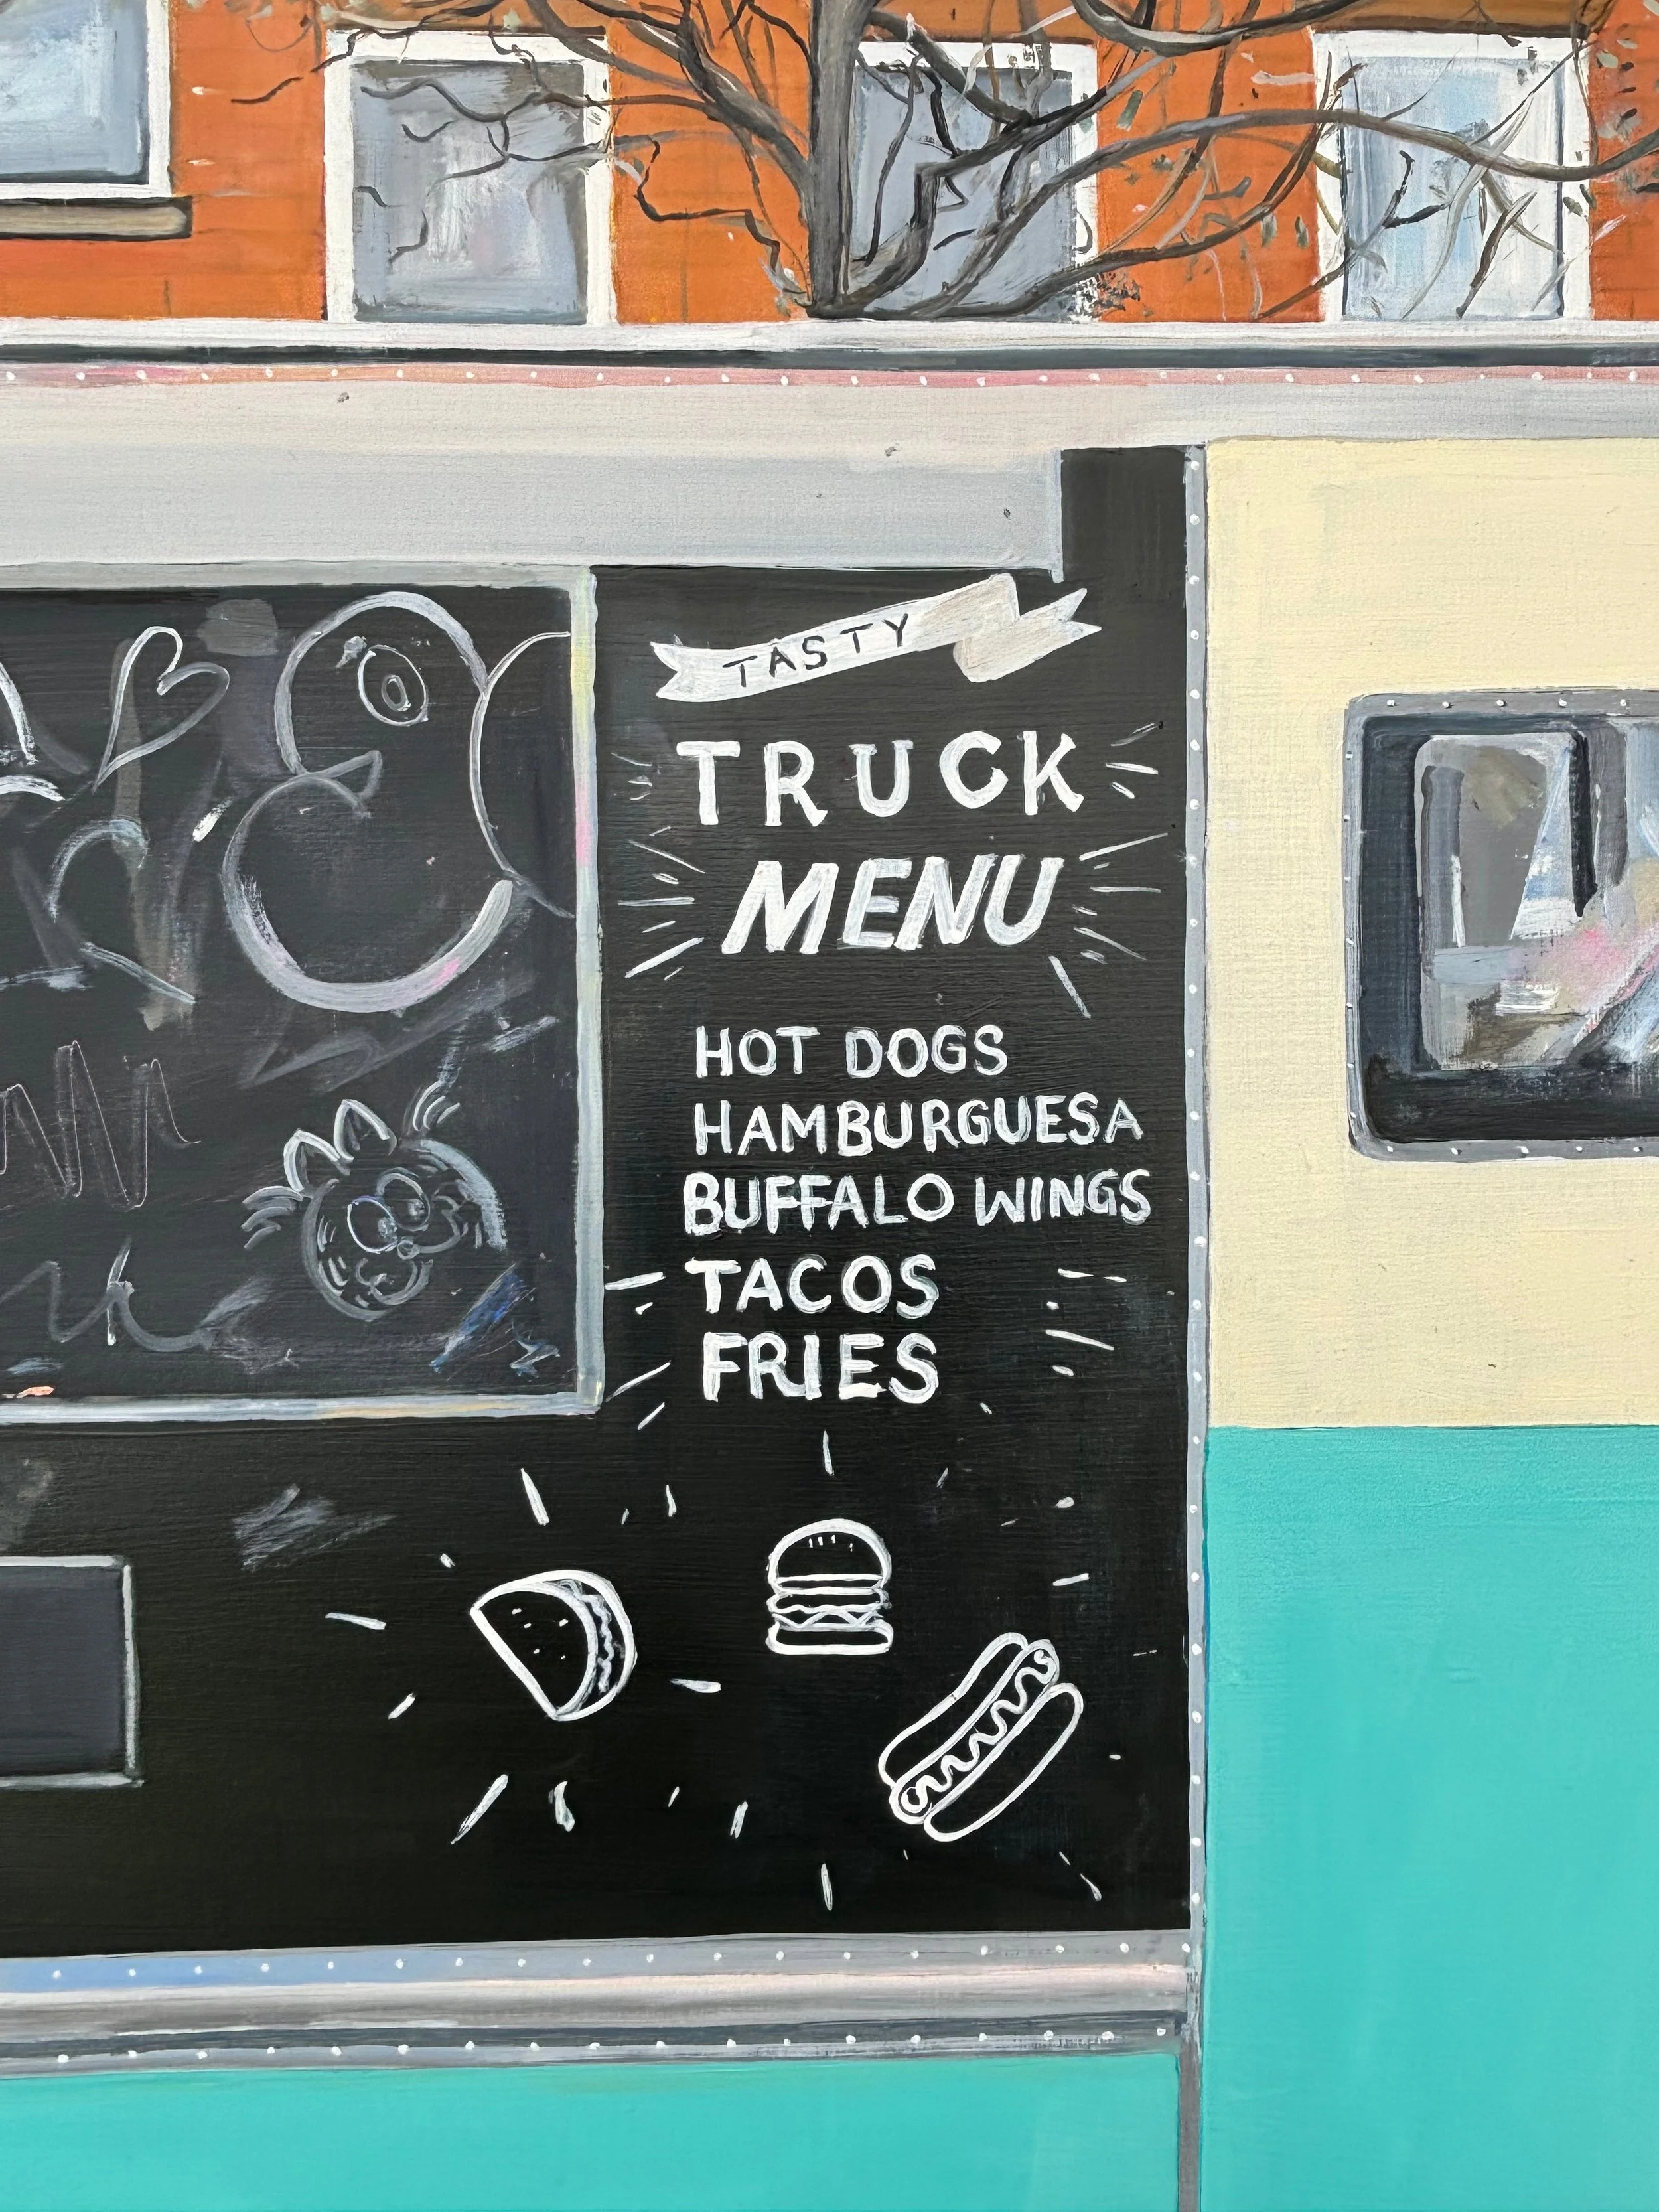 TASTY
TRUCK
MENU
HOT DOGS
HAMBURGUESA
BUFFALO WINGS
TACOS
FRIES